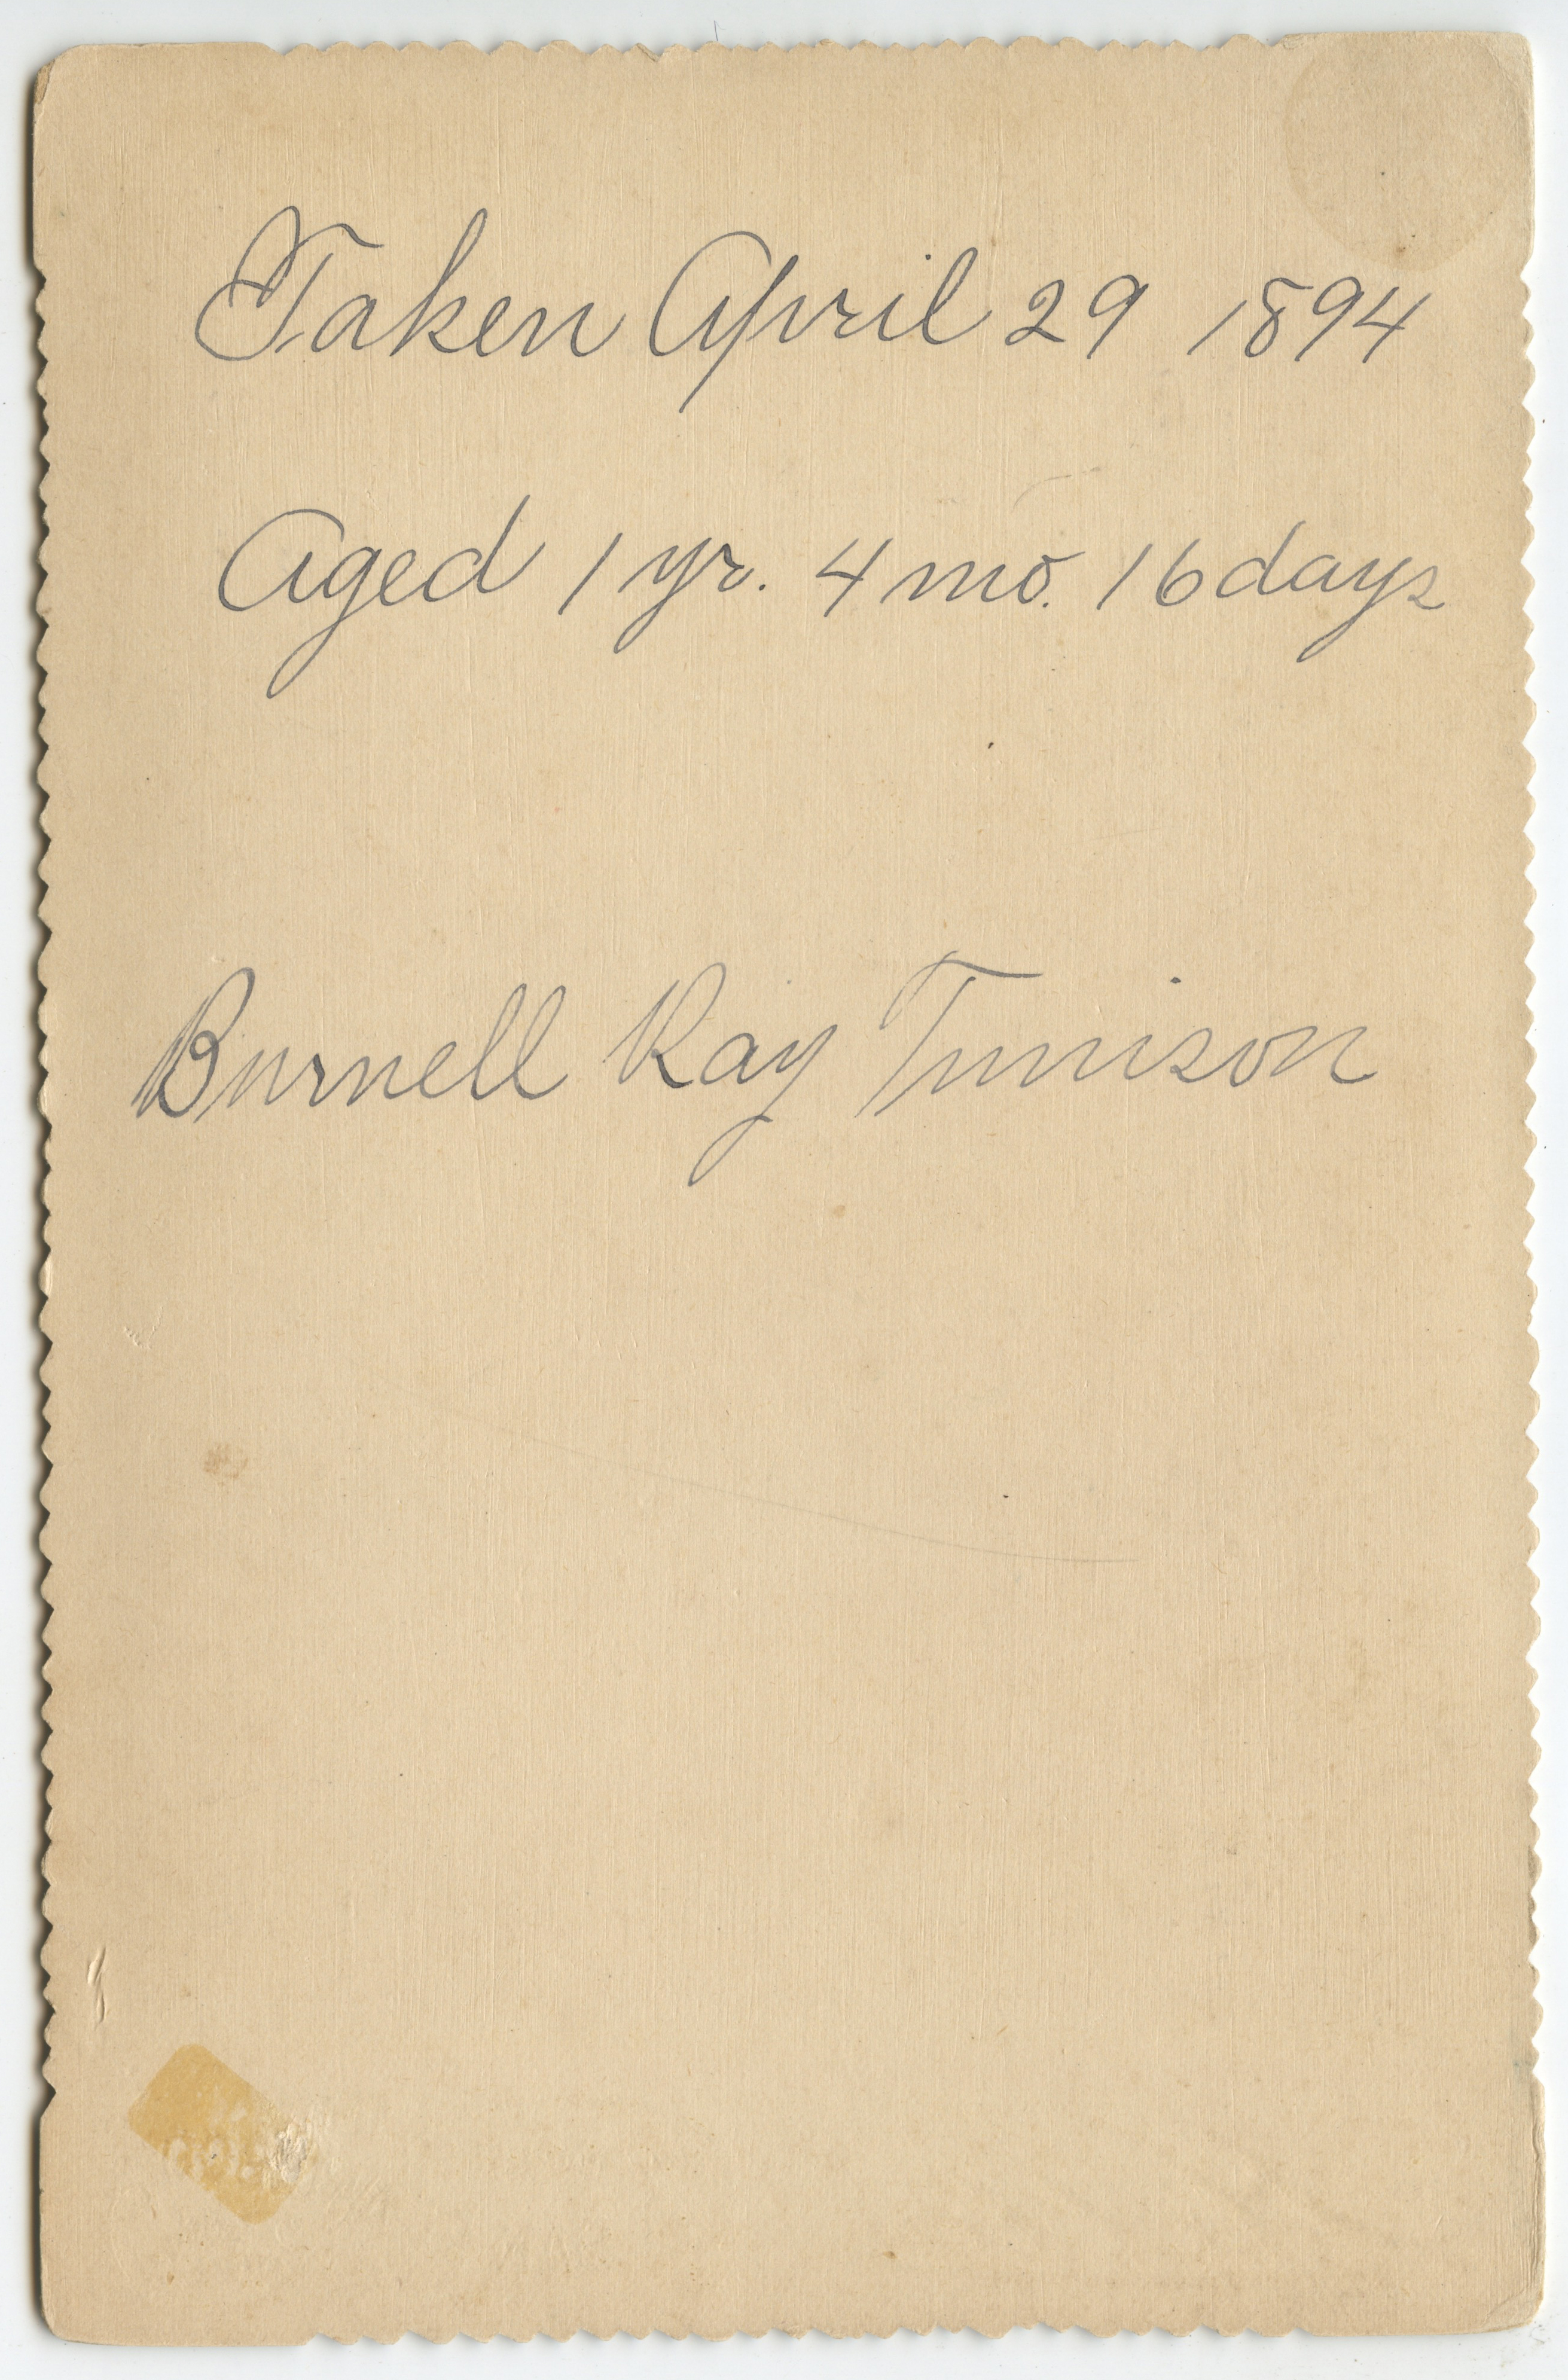 Taken April 29 1894
Aged 1 yr. 4 mo. 16 days
Burnell Ray Tunison